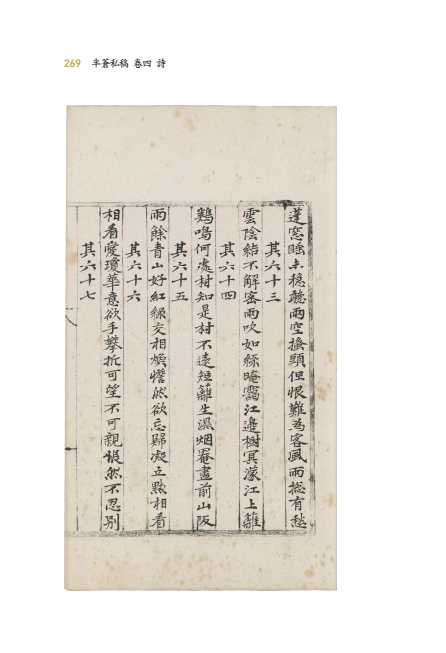 269 半蒼私稿 卷四 詩
蓬窓睡未穩聽雨空搔頭但恨難為客風雨揔有愁
其六十三
雲陰結不解密雨吹如絲晻靄江邊樹冥濛江上籬
其六十四
鷄鳴何處村知是村不遠短籬生濕烟罨畫前山阪
其六十五
雨餘青山好紅綠交相嫵㦜然欲忘歸凝立㸃相看
其六十六
相看愛瓊華意欲手攀折可望不可親悵然不忍別
其六十七